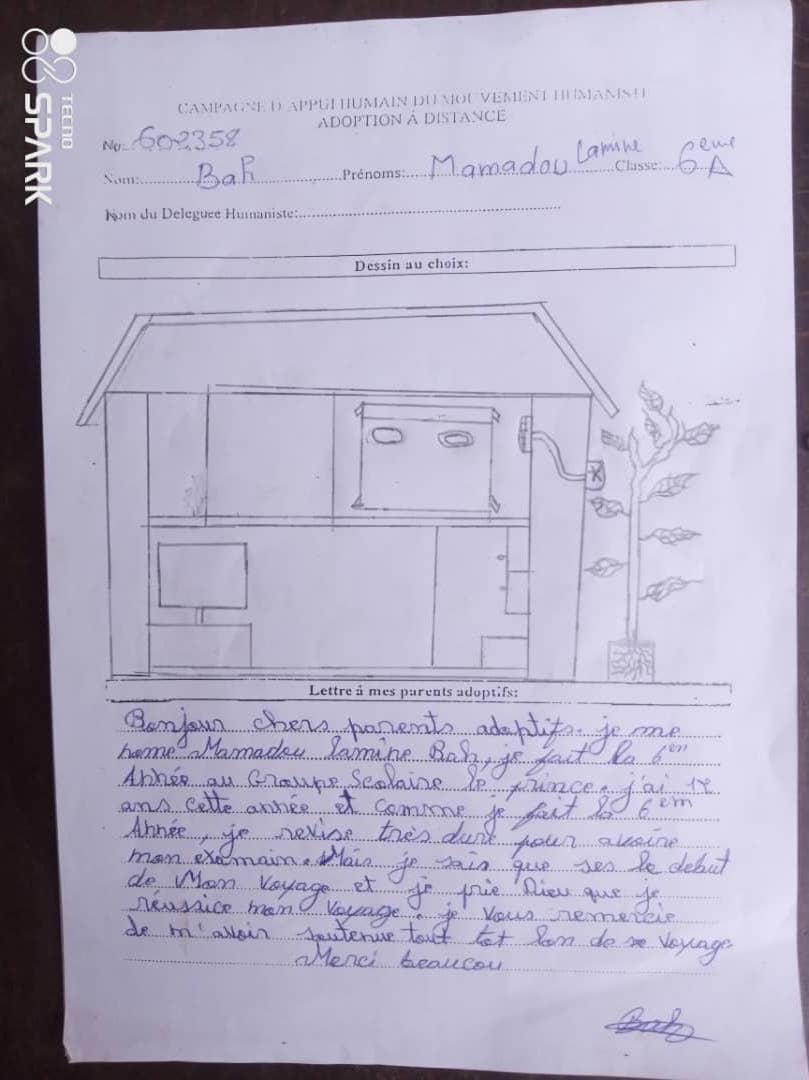 SPARK
TECNO
CAMPAGNE D'APPUI HUMAIN DU MOUVEMENT HUMANISTE
ADOPTION Á DISTANCE
No: 602358
Nom: Bah Prénoms: Mamadou Lamine Classe: 6eme A
Nom du Deleguee Humaniste:
Dessin au choix:
Lettre á mes parents adoptifs:
Bonjour chers parents adoptifs. je me
nome Mamadou lamine Bah, je fait la 6em
Année au Groupe Scolaire le prince. j'ai 12
ans cette année et comme je fait la 6em
Année, je revise très dure pour avoire
mon examain. Mais je sais que ses le debut
de Mon Voyage et je prie Dieu que je
réussice mon Voyage. je Vous remercie
de m'avoir soutenue tout tot lon de se Voyage
Merci beaucou
Bah